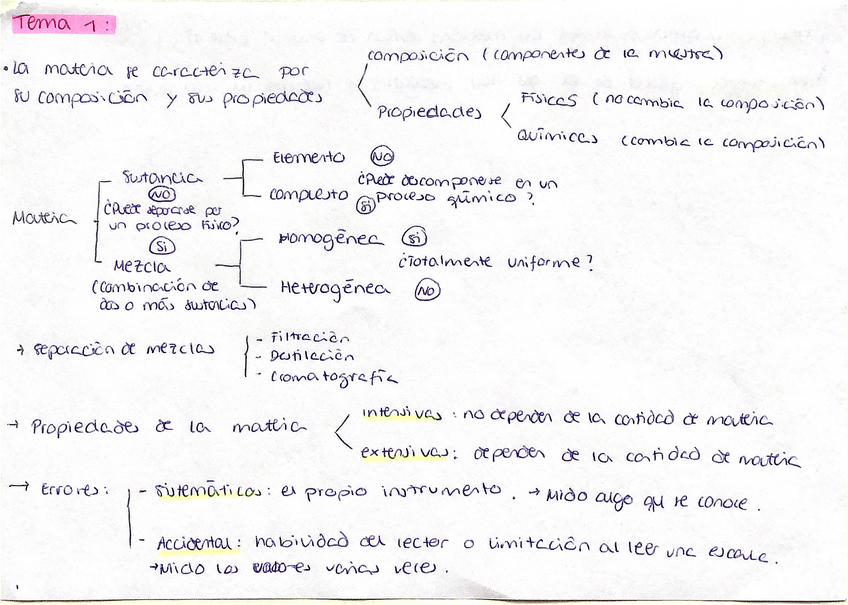 Tema 1:
• La materia se caracteriza por su composición y sus propiedades
composición (componentes de la muestra)
Propiedades
Físicas (no cambia la composición)
Químicas (cambia la composición)
Materia
Sutancia
NO
¿Puede separarse por un proceso físico?
Si
Mezcla
(combinación de dos o más sustancias)
Elemento NO
¿Puede descomponerse en un proceso químico?
compuesto Si
Homogénea Si
¿Totalmente uniforme?
Heterogénea NO
→ Separación de mezclas
- Filtración
- Destilación
- Cromatografía
→ Propiedades de la materia
intensivas: no dependen de la cantidad de materia
extensivas: dependen de la cantidad de materia
→ Errores:
- Sistemáticos: el propio instrumento. → Mido algo que se conoce.
- Accidental: habilidad del lector o limitación al leer una escala.
→ Mido los valores varias veces.